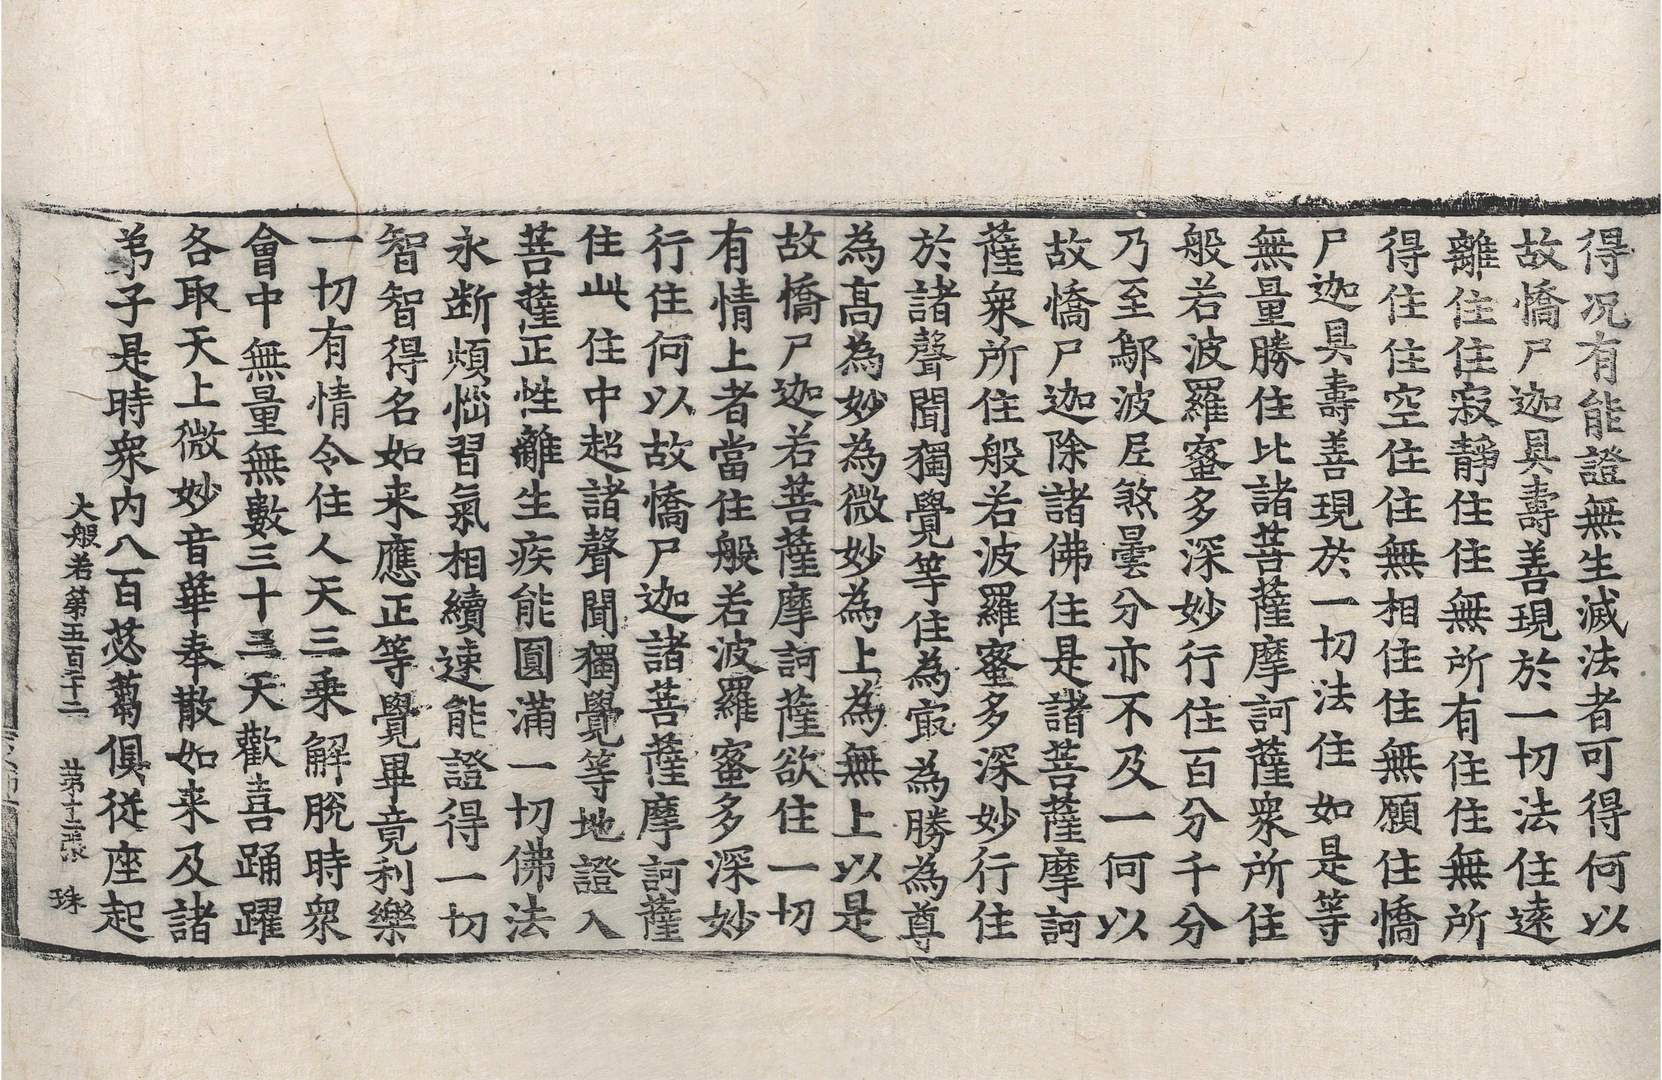 得况有能證無生滅法者可得何以
故憍尸迦具壽善現於一切法住遠
離住住寂靜住住無所有住住無所
得住住空住住無相住住無願住憍
尸迦具壽善現於一切法住如是等
無量勝住比諸菩薩摩訶薩衆所住
般若波羅蜜多深妙行住百分千分
乃至鄔波尼煞曇分亦不及一何以
故憍尸迦除諸佛住是諸菩薩摩訶
薩衆所住般若波羅蜜多深妙行住
於諸聲聞獨覺等住為冣為勝為尊
為高為妙為微妙為上為無上以是
故憍尸迦若菩薩摩訶薩欲住一切
有情上者當住般若波羅蜜多深妙
行住何以故憍尸迦諸菩薩摩訶薩
住此住中超諸聲聞獨覺等地證入
菩薩正性離生疾能圓滿一切佛法
永断煩惱習氣相續速能證得一切
智智得名如来應正等覺畢竟利樂
一切有情令住人天三乘解脫時衆
會中無量無數三十三天歡喜踊躍
各取天上微妙音華奉散如来及諸
弟子是時衆内八百苾蒭俱從座起
大般若第五百三十二 第十二張 珠